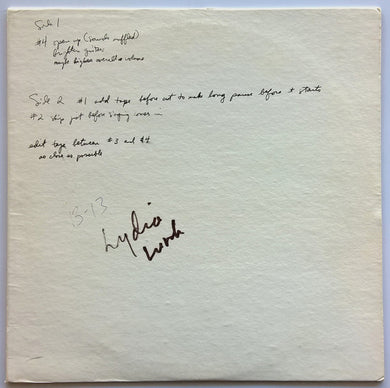 Side 1
#4 open up (sounds muffled)
brighten guitar
maybe higher overall volume
Side 2 #1 add tape before cut to make long pause before it starts
#2 skip just before singing over
edit tape between #3 and #4
as close as possible
3-13
Lydia
Lunch